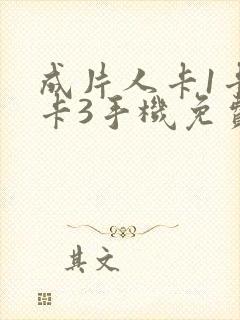 成片人卡1卡
卡3手機免費
其文